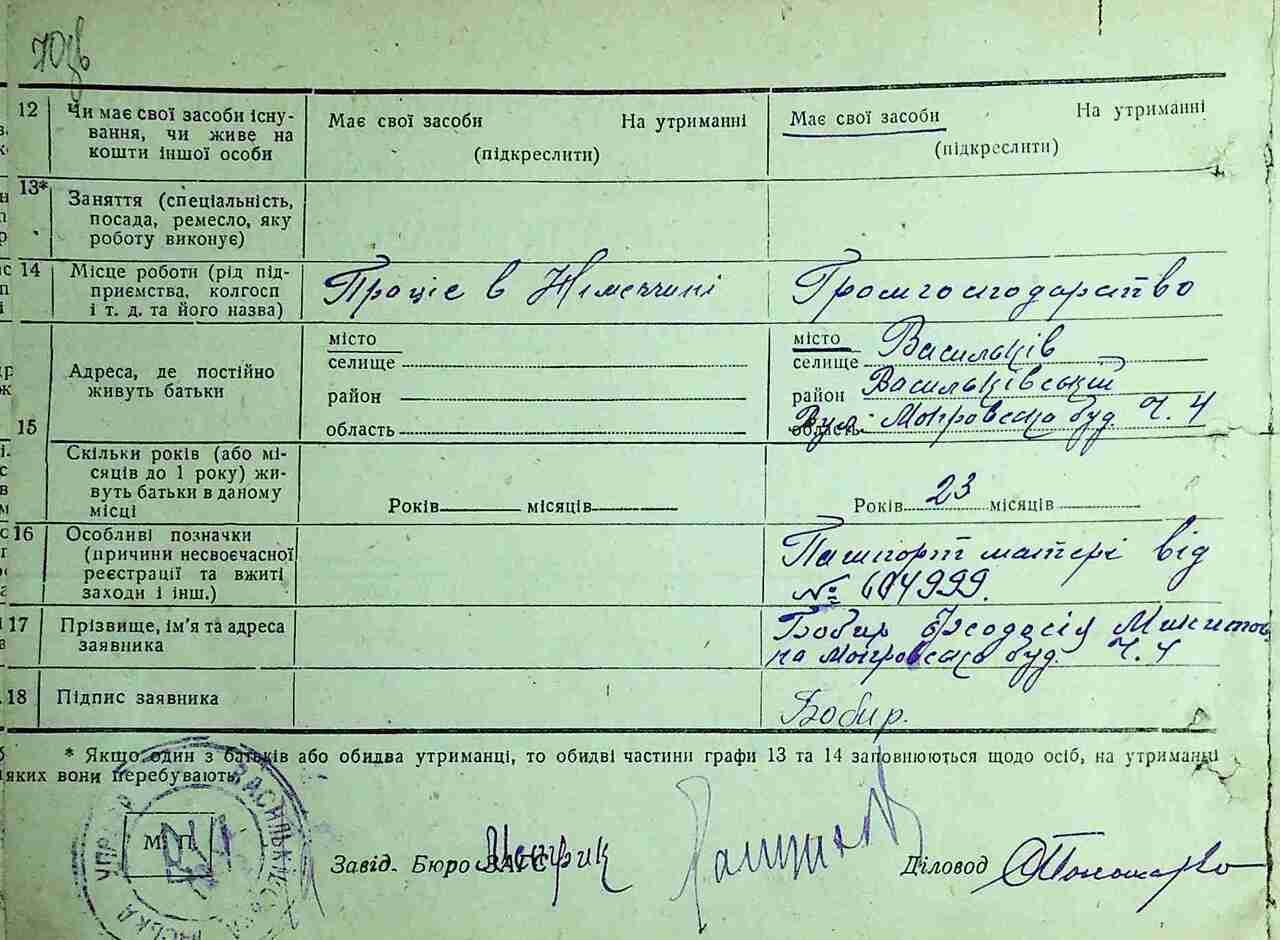 12 Чи має свої засоби існу-
вання, чи живе на
кошти іншої особи
Має свої засоби На утриманні
(підкреслити)
Має свої засоби На утриманні
(підкреслити)
13* Заняття (спеціальність,
посада, ремесло, яку
роботу виконує)
14 Місце роботи (рід під-
приємства, колгосп
і т. д. та його назва)
Працює в Німеччині
Промгосподарство
15 Адреса, де постійно
живуть батьки
місто
селище
район
область
місто Васильків
селище
район Васильківський
область Вул. буд. Ч. 4
Скільки років (або мі-
сяців до 1 року) жи-
вуть батьки в даному
місці
Років місяців
Років 23 місяців
16 Особливі позначки
(причини несвоєчасної
реєстрації та вжиті
заходи і інш.)
Пашпорт матері від
№ 604999.
17 Прізвище, ім'я та адреса
заявника
Бобир Феодосія
буд. Ч. 4
18 Підпис заявника
Бобир.
* Якщо один з батьків або обидва утриманці, то обидві частини графи 13 та 14 заповнюються щодо осіб, на утриманні
яких вони перебувають.
М. П.
Завід. Бюро ЗАГС
Діловод Пономаренко